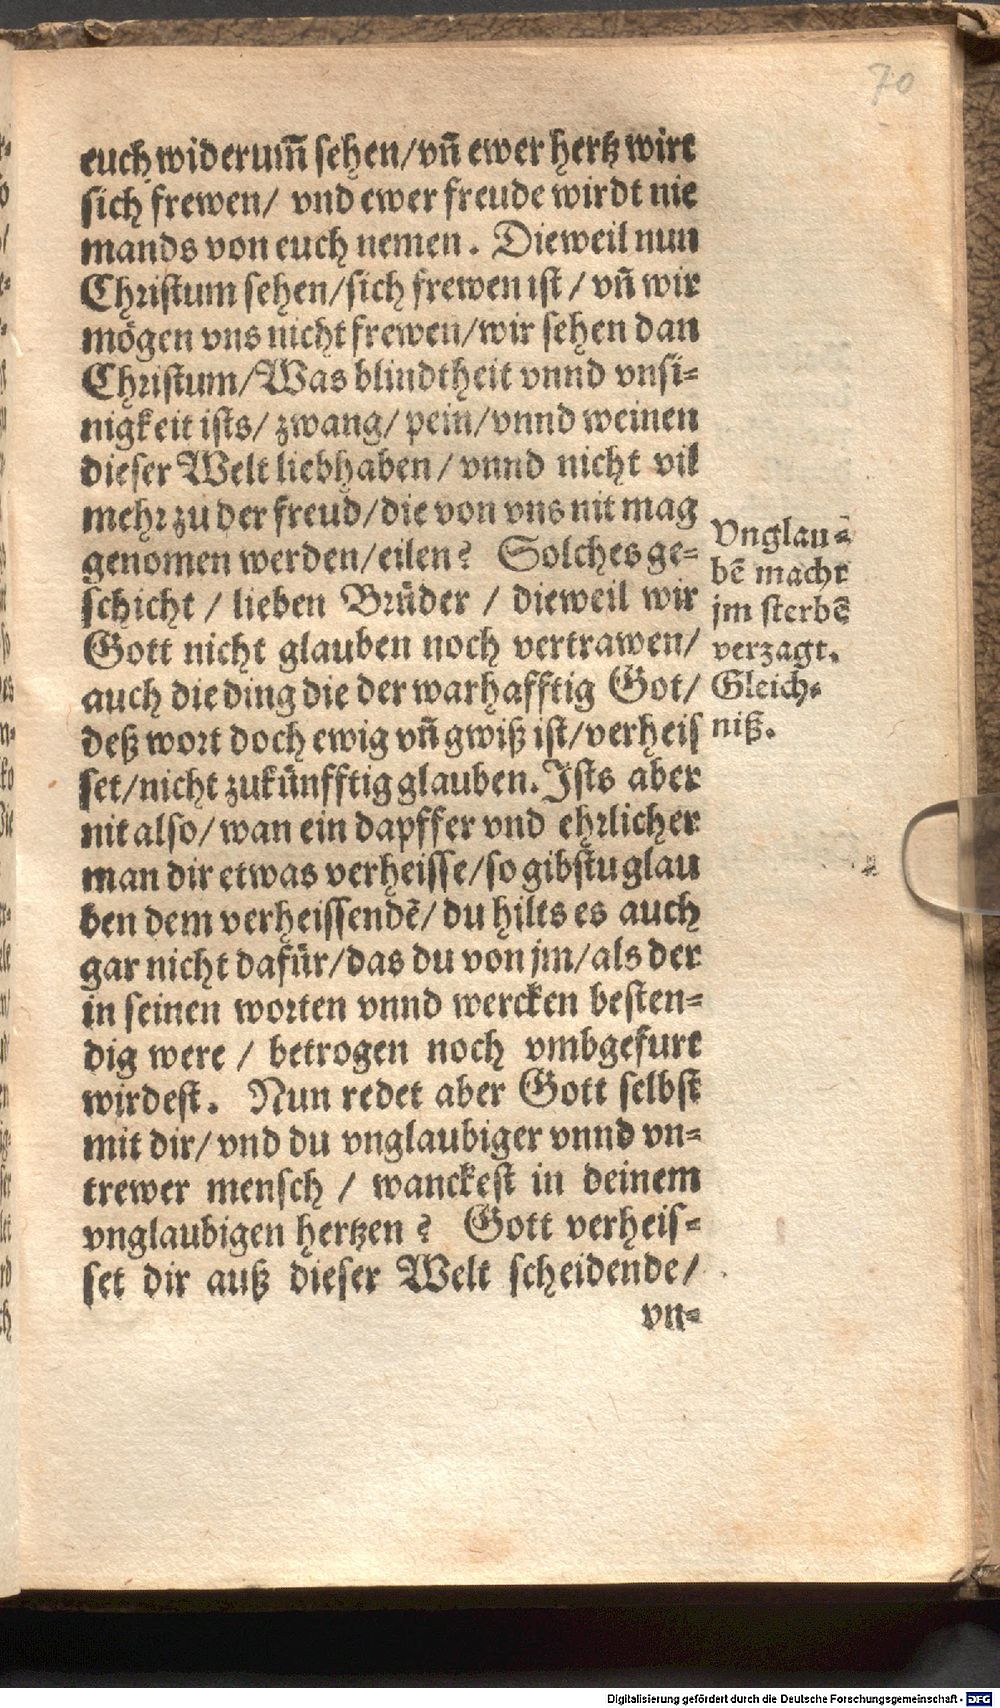 70
euch widerum̃ sehen/vñ ewer hertz wirt
sich frewen/ vnd ewer freude wirdt nie
mands von euch nemen. Dieweil nun
Christum sehen/sich frewen ist/ vñ wir
mögen vns nicht frewen/wir sehen dan
Christum/Was blindtheit vnnd vnsi-
nigkeit ists/ zwang/ pein/vnnd weinen
dieser Welt liebhaben/ vnnd nicht vil
mehr zu der freud/die von vns nit mag
genomen werden/eilen? Solches ge-
schicht / lieben Brüder / dieweil wir
Gott nicht glauben noch vertrawen/
auch die ding die der warhafftig Got/
deß wort doch ewig vñ gwiß ist/verheis
set/nicht zukünfftig glauben. Ists aber
nit also/wan ein dapffer vnd ehrlicher
man dir etwas verheisse/so gibstu glau
ben dem verheissendẽ/ du hilts es auch
gar nicht dafür/das du von jm/als der
in seinen worten vnnd wercken besten-
dig were / betrogen noch vmbgefurt
wirdest. Nun redet aber Gott selbst
mit dir/ vnd du vnglaubiger vnnd vn-
trewer mensch / wanckest in deinem
vnglaubigen hertzen? Gott verheis-
set dir auß dieser Welt scheidende/
vn-
Vnglau-
bẽ macht
jm sterbẽ
verzagt.
Gleich-
niß.
Digitalisierung gefördert durch die Deutsche Forschungsgemeinschaft - DFG